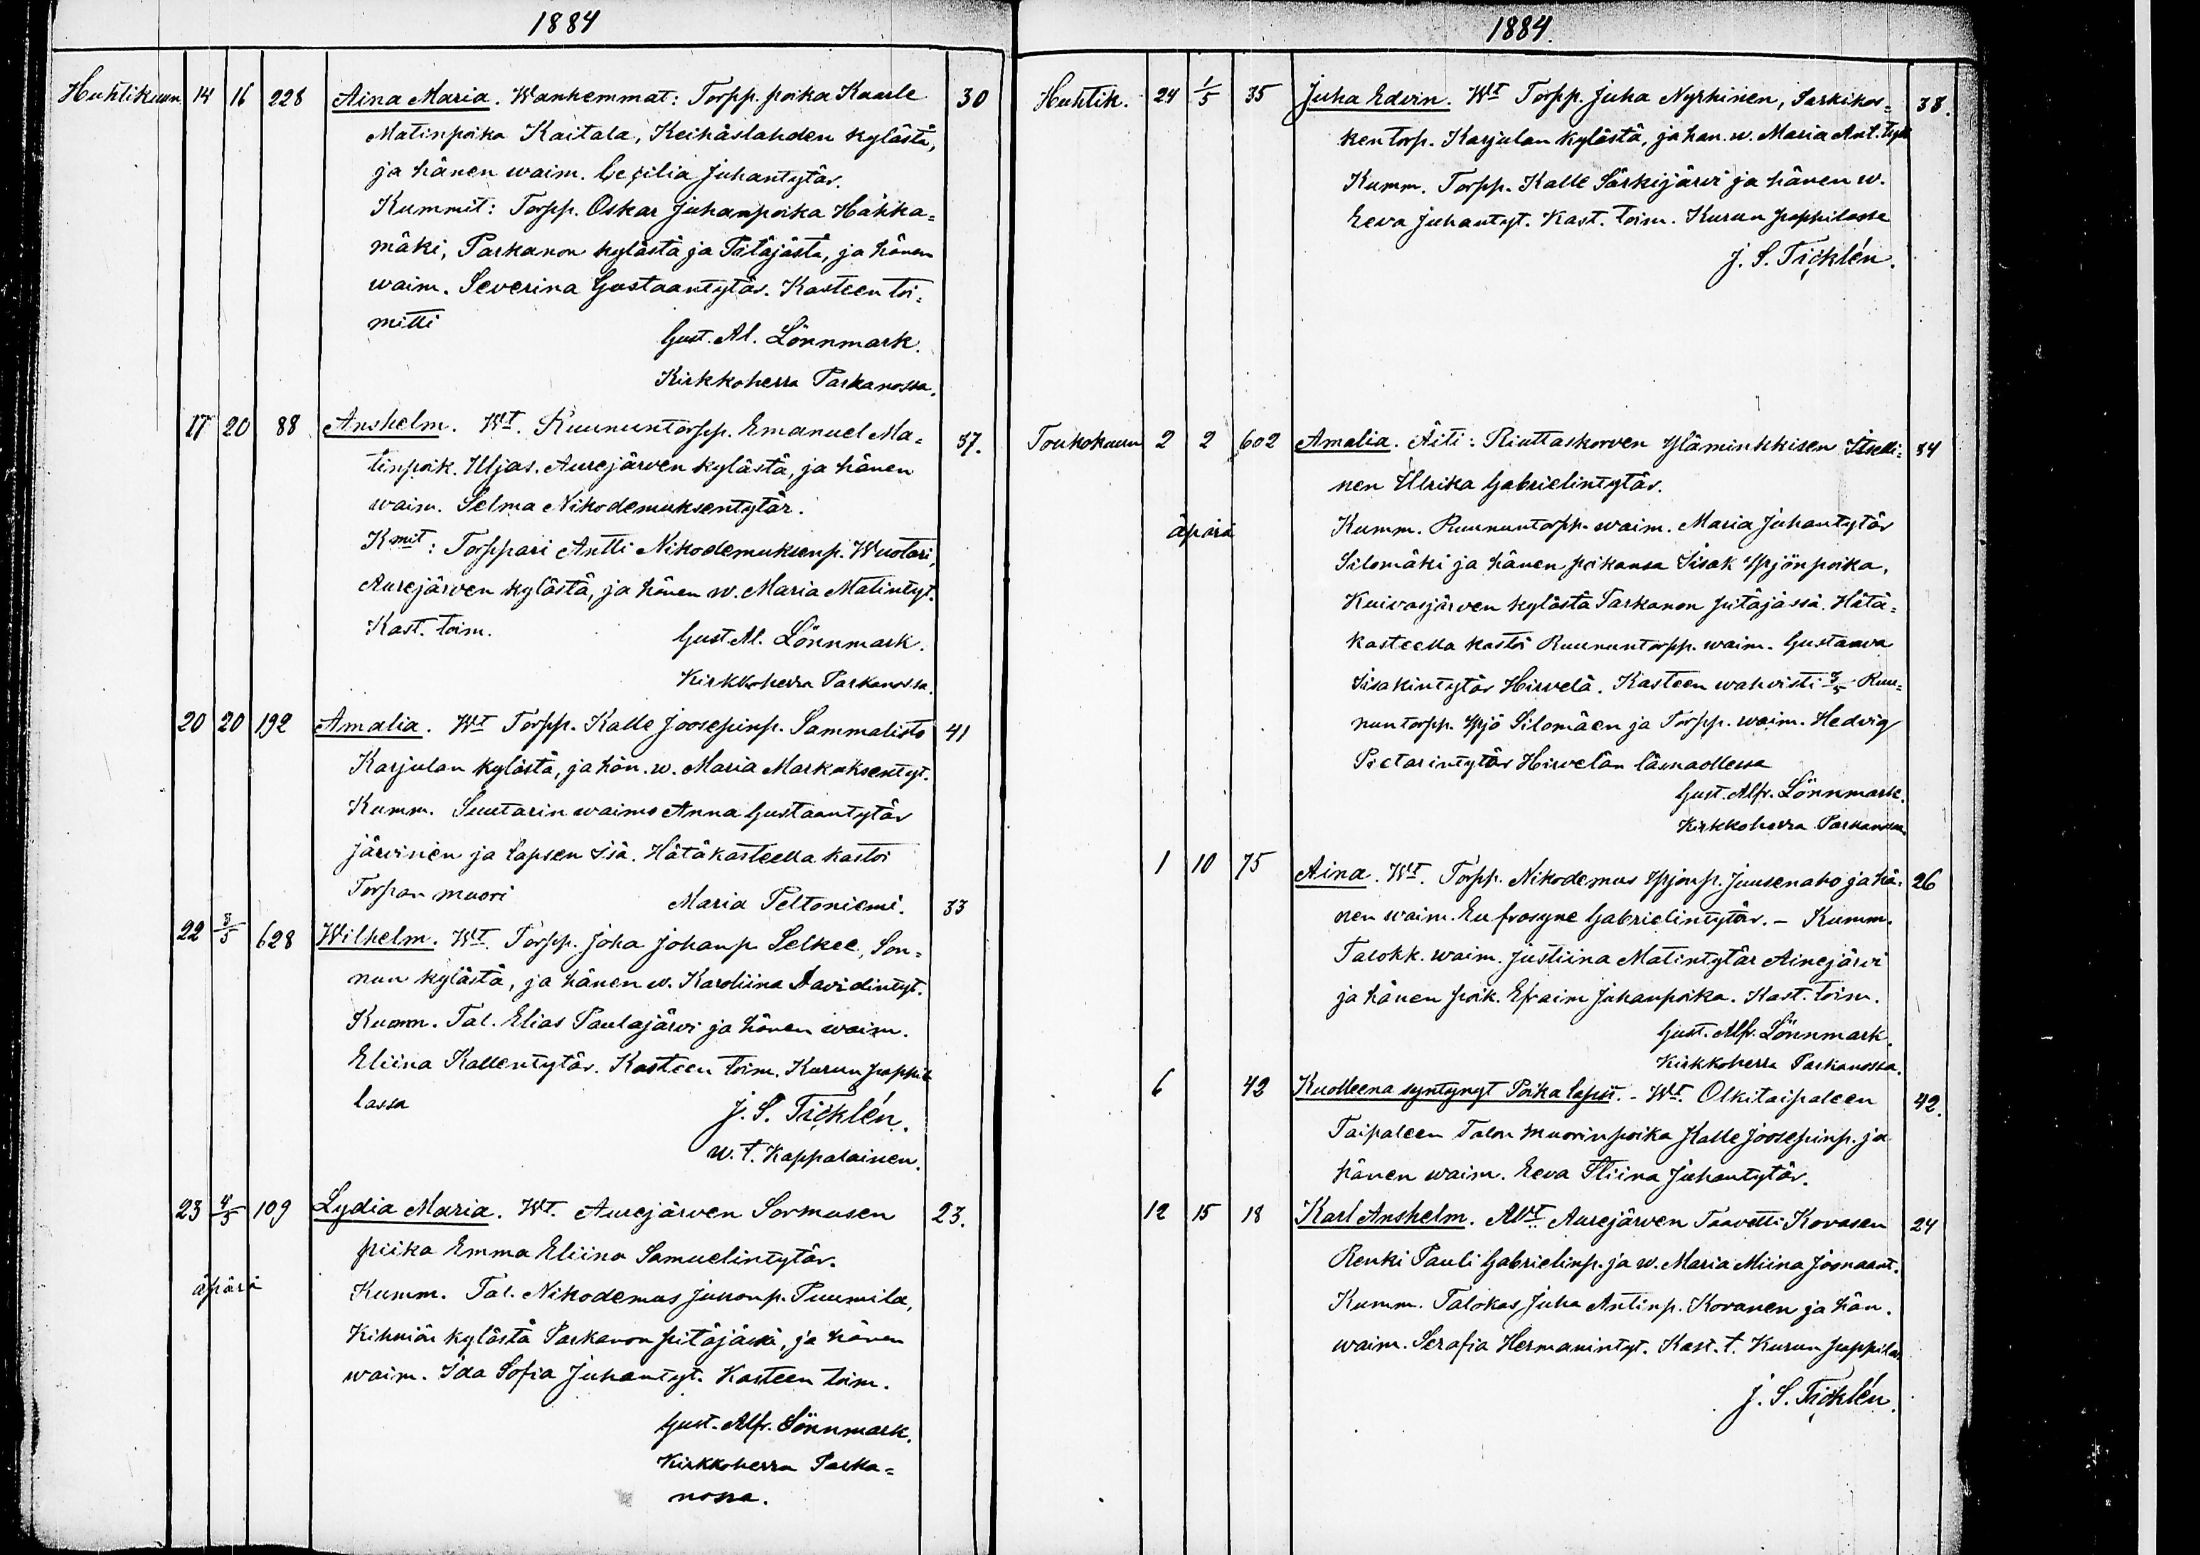 1884
Huhtikuun 14 16 228 Aina Maria. Wanhemmat: Torpp. poika Kaarle 30
Matinpoika Kaitala, Keihäslahden kylästä,
ja hänen waim. Cecilia Juhantytär.
Kummit: Torpp. Oskar Juhanpoika Hakka=
mäki, Parkanon kylästä ja Pitäjästä, ja hänen
waim. Severina Gustaantytär. Kasteen toi=
mitti
Gust. Al. Lönnmark.
Kirkkoherra Parkanossa.
17 20 88 Anshelm. Wt. Ruununtorpp. Emanuel Ma= 37.
tinpoik. Uljas. Aurejärwen kylästä, ja hänen
waim. Selma Nikodemuksentytär.
Kmit: Torppari Antti Nikodemuksenp. Wuotari,
Aurejärwen kylästä, ja hänen w. Maria Matintyt.
Kast. toim.
Gust. Al. Lönnmark.
Kirkkoherra Parkanossa.
20 20 192 Amalia. Wt Torpp. Kalle Joosepinp. Sammalisto 41
Karjulan kylästä, ja hän. w. Maria Markuksentyt.
Kumm. Suutarin waimo Anna Gustaantytär
Järvinen ja lapsen isä. Hätäkasteella kastoi
Torpan muori Maria Peltoniemi.
22 3/5 628 Wilhelm. Wt. Torpp. Joha Johanp Selkee, Son= 33
nun kylästä, ja hänen w. Karoliina Davidintyt.
Kumm. Tal. Elias Paulajärvi ja hänen waim.
Eliina Kallentytär. Kasteen toim. Kurun pappi
lassa
J. S. Ticklén.
w. t. Kappalainen.
23 4/5 109 Lydia Maria. Wt. Aurejärven Sormusen 23.
piika Emma Eliina Samuelintytär.
äpärä Kumm. Tal. Nikodemus Juhonp. Puumila,
Kihniön kylästä Parkanon pitäjässä, ja hänen
waim. Ida Sofia Juhantyt. Kasteen toim.
Gust. Alfr. Lönnmark.
Kirkkoherra Parka=
nossa.
1884.
Huhtik. 24 1/5 35 Juha Edvin. Wt Torpp. Juha Nyrhinen, Sarkikos= 38.
ken torp. Karjulan kylästä, ja han. w. Maria Ant. tyt
Kumm. Torpp. Kalle Särkijärvi ja hänen w.
Eeva Juhantyt. Kast. toim. Kurun pappilassa
J. S. Ticklén.
Toukokuun 2 2 602 Amalia. Äiti: Riuttaskorven Itselli= 34
nen Ulrika Gabrielintytär.
äpärä Kumm. Ruununtorpp. waim. Maria Juhantytär
Silomäki ja hänen poikansa Iisak Yrjönpoika,
Kuivasjärven kylästä Parkanon pitäjässä. Hätä=
kasteella kastoi Ruununtorpp. waim. Gustaava
Iisakintytär Hirvelä. Kasteen wahvisti 3/5 Ruu=
nuntorpp. Yrjö Silomäen ja Torpp. waim. Hedvig
Pietarintytär Hirvelän läsnäollessa
Gust. Alfr. Lönnmark.
Kirkkoherra Parkanossa
1 10 75 Aina. Wt. Torpp. Nikodemus Yrjönp. Juusenaho ja hä= 26
nen waim. Eufrosyne Gabrielintytär. - Kumm.
Talokk. waim. Justiina Matintytär Ainejärvi
ja hänen poik. Efraim Juhanpoika. Kast. toim.
Gust. Alfr. Lönnmark.
Kirkkoherra Parkanossa.
6 42 Kuolleena syntynyt Poika lapsi. - Wt. Olkitaipaleen 42.
Taipaleen Talon muorinpoika Kalle Joosepinp. ja
hänen waim. Eeva Stiina Juhantytär.
12 15 18 Karl Anshelm. Awt. Aurejärwen Taavetti Korasen 24
Renki Pauli Gabrielinp. ja w. Maria Miina Joonaant.
Kumm. Talokas Juha Antinp. Koranen ja hän.
waim. Serafia Hermanintyt. Kast. t. Kurun pappilas
J. S. Ticklén.